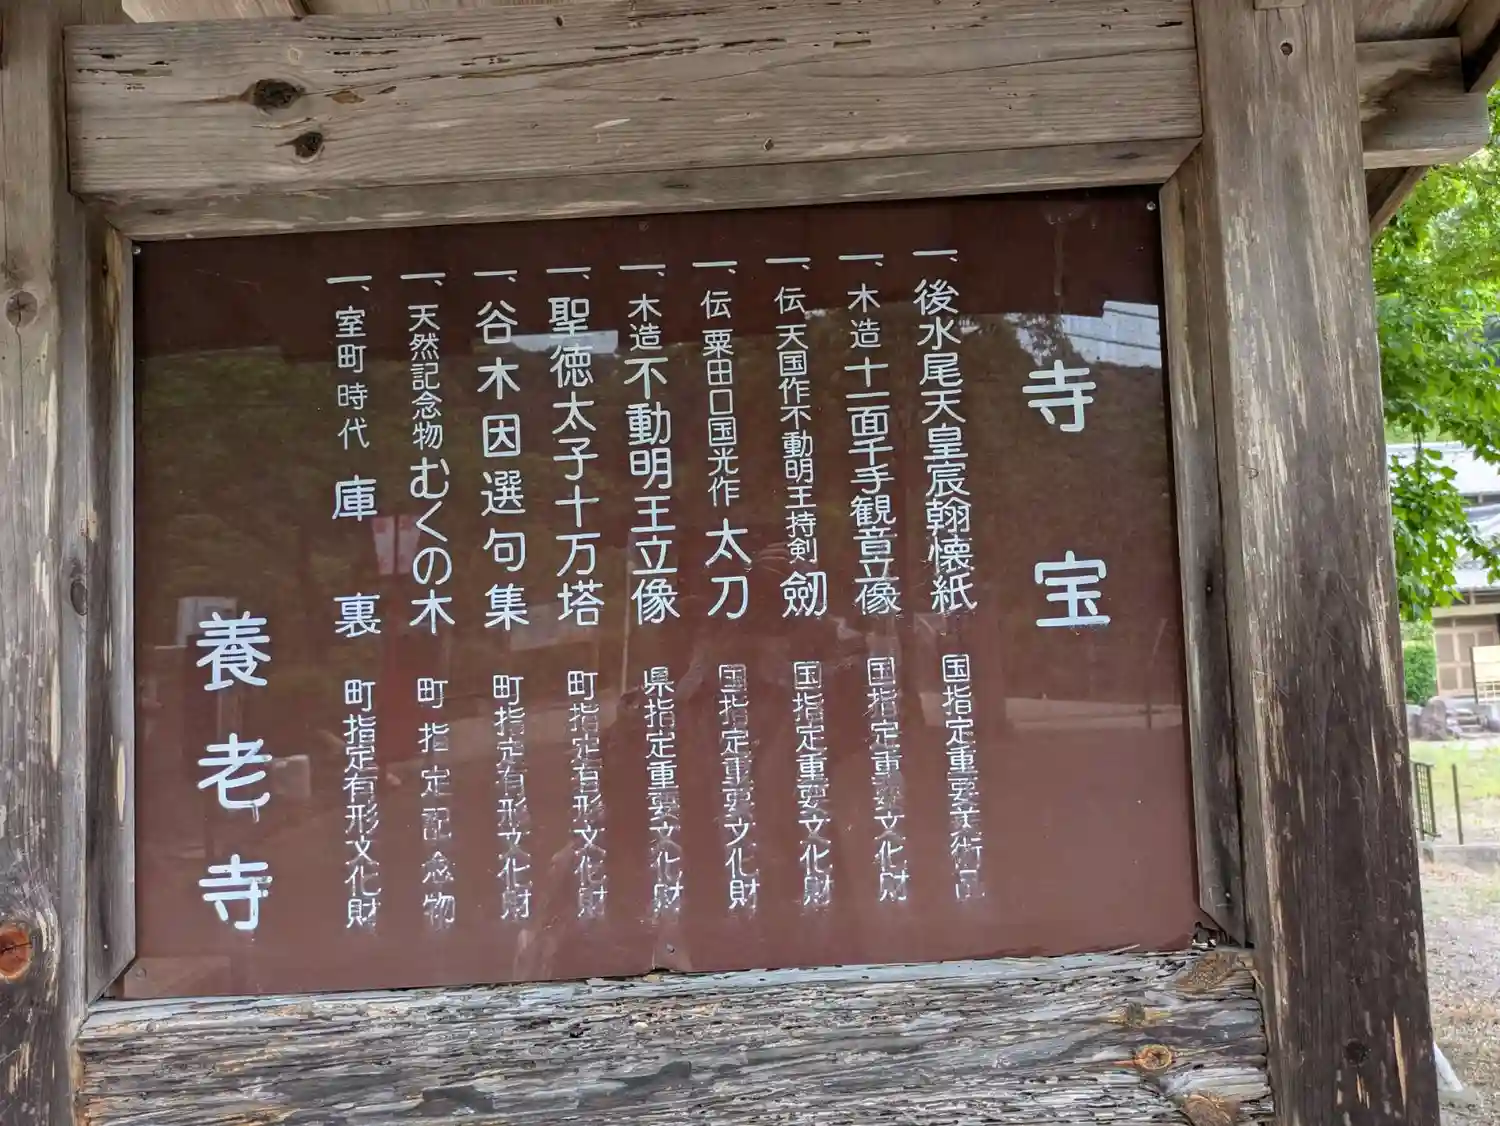 寺宝
一、後水尾天皇宸翰懐紙 国指定重要美術品
一、木造十一面千手観音立像 国指定重要文化財
一、伝天国作不動明王持剣 劒 国指定重要文化財
一、伝粟田口国光作 太刀 国指定重要文化財
一、木造不動明王立像 県指定重要文化財
一、聖徳太子十万塔 町指定有形文化財
一、谷木因選句集 町指定有形文化財
一、天然記念物むくの木 町指定記念物
一、室町時代 庫裏 町指定有形文化財
養老寺